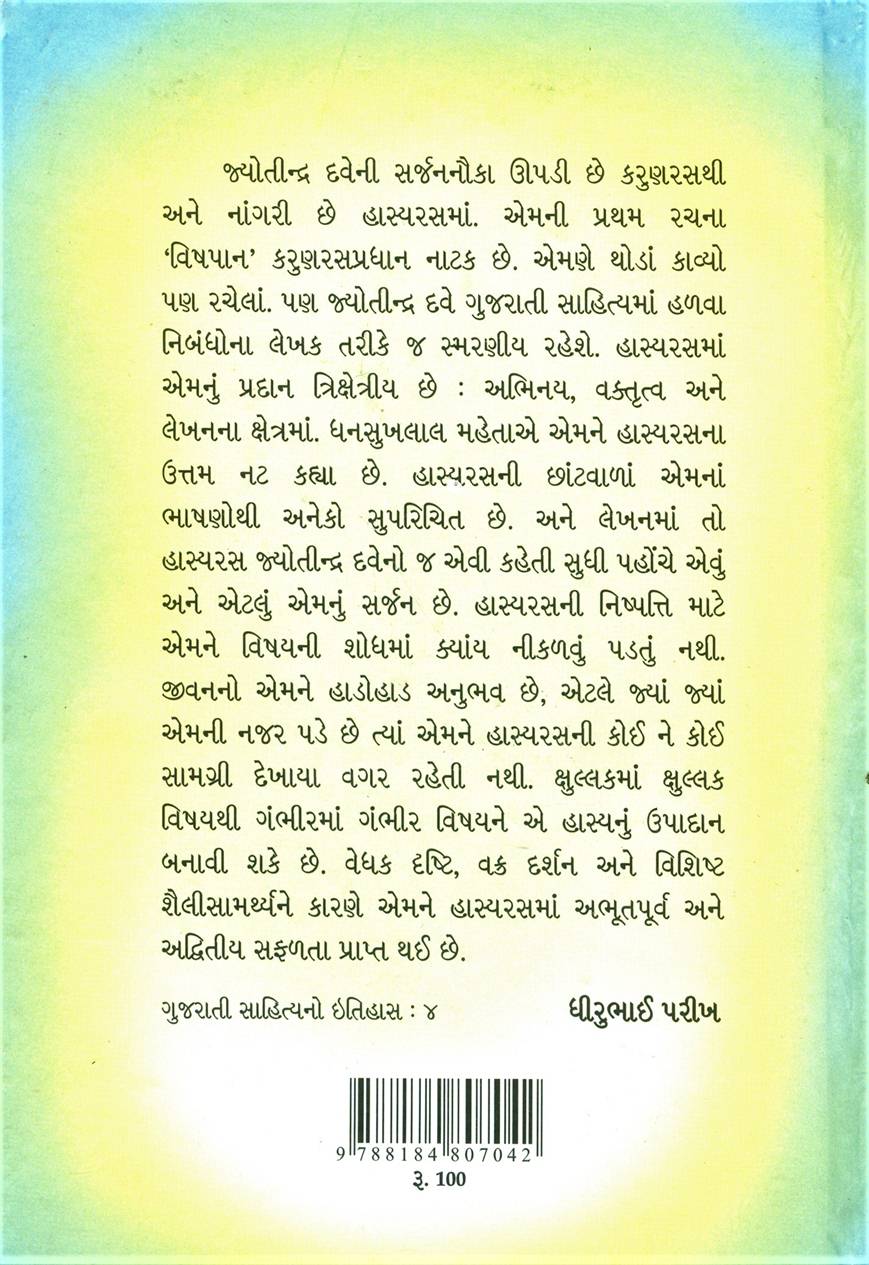 જ્યોતીન્દ્ર દવેની સર્જનનૌકા ઊપડી છે કરુણરસથી
અને નાંગરી છે હાસ્યરસમાં. એમની પ્રથમ રચના
‘વિષપાન’ કરુણરસપ્રધાન નાટક છે. એમણે થોડાં કાવ્યો
પણ રચેલાં. પણ જ્યોતીન્દ્ર દવે ગુજરાતી સાહિત્યમાં હળવા
નિબંધોના લેખક તરીકે જ સ્મરણીય રહેશે. હાસ્યરસમાં
એમનું પ્રદાન ત્રિક્ષેત્રીય છે : અભિનય, વક્તૃત્વ અને
લેખનના ક્ષેત્રમાં. ધનસુખલાલ મહેતાએ એમને હાસ્યરસના
ઉત્તમ નટ કહ્યા છે. હાસ્યરસની છાંટવાળાં એમનાં
ભાષણોથી અનેકો સુપરિચિત છે. અને લેખનમાં તો
હાસ્યરસ જ્યોતીન્દ્ર દવેનો જ એવી કહેતી સુધી પહોંચે એવું
અને એટલું એમનું સર્જન છે. હાસ્યરસની નિષ્પત્તિ માટે
એમને વિષયની શોધમાં ક્યાંય નીકળવું પડતું નથી.
જીવનનો એમને હાડોહાડ અનુભવ છે, એટલે જ્યાં જ્યાં
એમની નજર પડે છે ત્યાં એમને હાસ્યરસની કોઈ ને કોઈ
સામગ્રી દેખાયા વગર રહેતી નથી. ક્ષુલ્લકમાં ક્ષુલ્લક
વિષયથી ગંભીરમાં ગંભીર વિષયને એ હાસ્યનું ઉપાદાન
બનાવી શકે છે. વેધક દૃષ્ટિ, વક્ર દર્શન અને વિશિષ્ટ
શૈલીસામર્થ્યને કારણે એમને હાસ્યરસમાં અભૂતપૂર્વ અને
અદ્વિતીય સફળતા પ્રાપ્ત થઈ છે.
ગુજરાતી સાહિત્યનો ઇતિહાસ : ૪ ધીરુભાઈ પરીખ
9 788184 807042
રૂ. 100